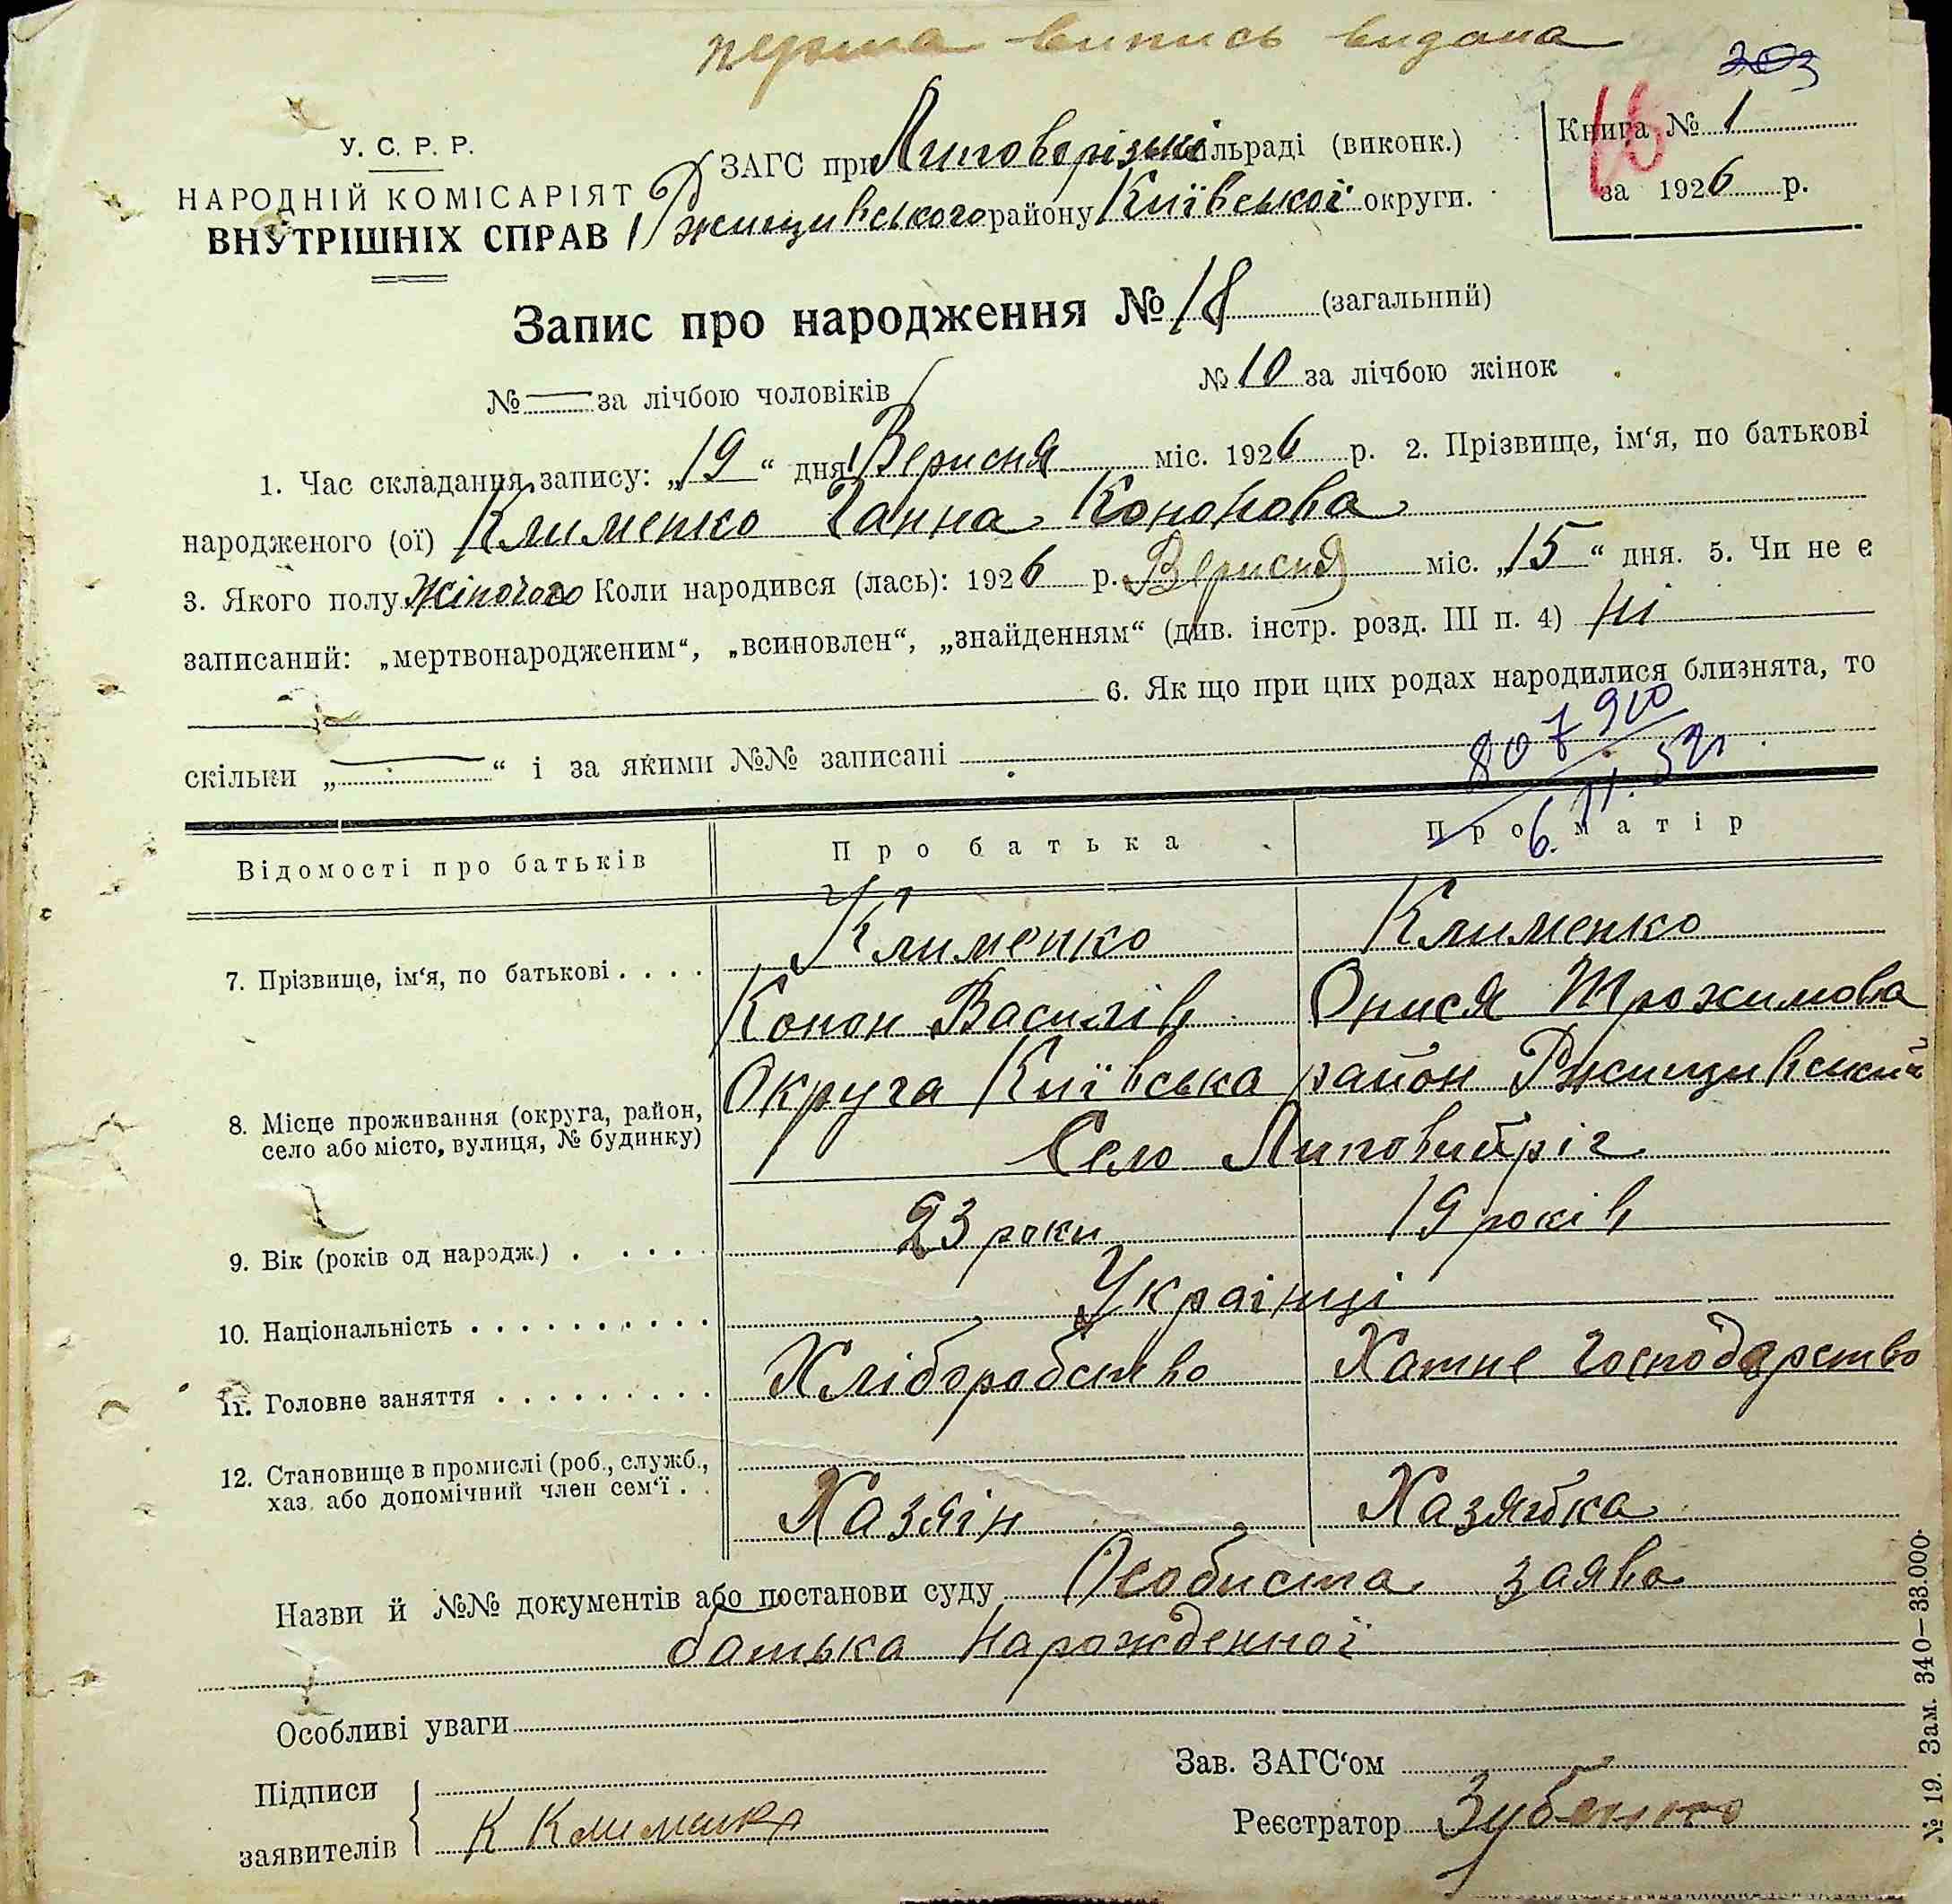 перша випись видана
203
У. С. Р. Р.
НАРОДНІЙ КОМІСАРІЯТ
ВНУТРІШНІХ СПРАВ
ЗАГС при Липоворізькі сільраді (виконк.)
Ржищивського району Київської округи.
Книга № 1
16
за 1926 р.
Запис про народження № 18 (загальний)
№ — за лічбою чоловіків № 10 за лічбою жінок
1. Час складання запису: „19“ дня Вересня міс. 1926 р. 2. Прізвище, ім‘я, по батькові
народженого (ої) Клименко Ганна Кононова
3. Якого полу Жіночого Коли народився (лась): 1926 р. Вересня міс. „15“ дня. 5. Чи не є
записаний: „мертвонародженим“, „всиновлен“, „знайденням“ (див. інстр. розд. III п. 4) ні
6. Як що при цих родах народилися близнята, то
скільки „—“ і за якими №№ записані
807910
6. VI. 52
Відомості про батьків Про батька Про матір
7. Прізвище, ім‘я, по батькові . . . . Клименко Клименко
Конон Василів Орися Трохимова
8. Місце проживання (округа, район, село або місто, вулиця, № будинку) Округа Київська район Ржищивський
Село Липовийріг
9. Вік (років од народж.) . . . . . 23 роки 19 років
10. Національність . . . . . . . . . . Українці
11. Головне заняття . . . . . . . . . Хлібробство Хатне господарство
12. Становище в промислі (роб., служб.,
хаз. або допомічний член сем‘ї . . Хазяїн Хазяйка
Назви й №№ документів або постанови суду Особиста заява
батька нарожденної
Особливі уваги
Підписи
заявителів К Клименко
Зав. ЗАГС‘ом
Реєстратор Зубенко
№ 19. Зам. 340—33.000.